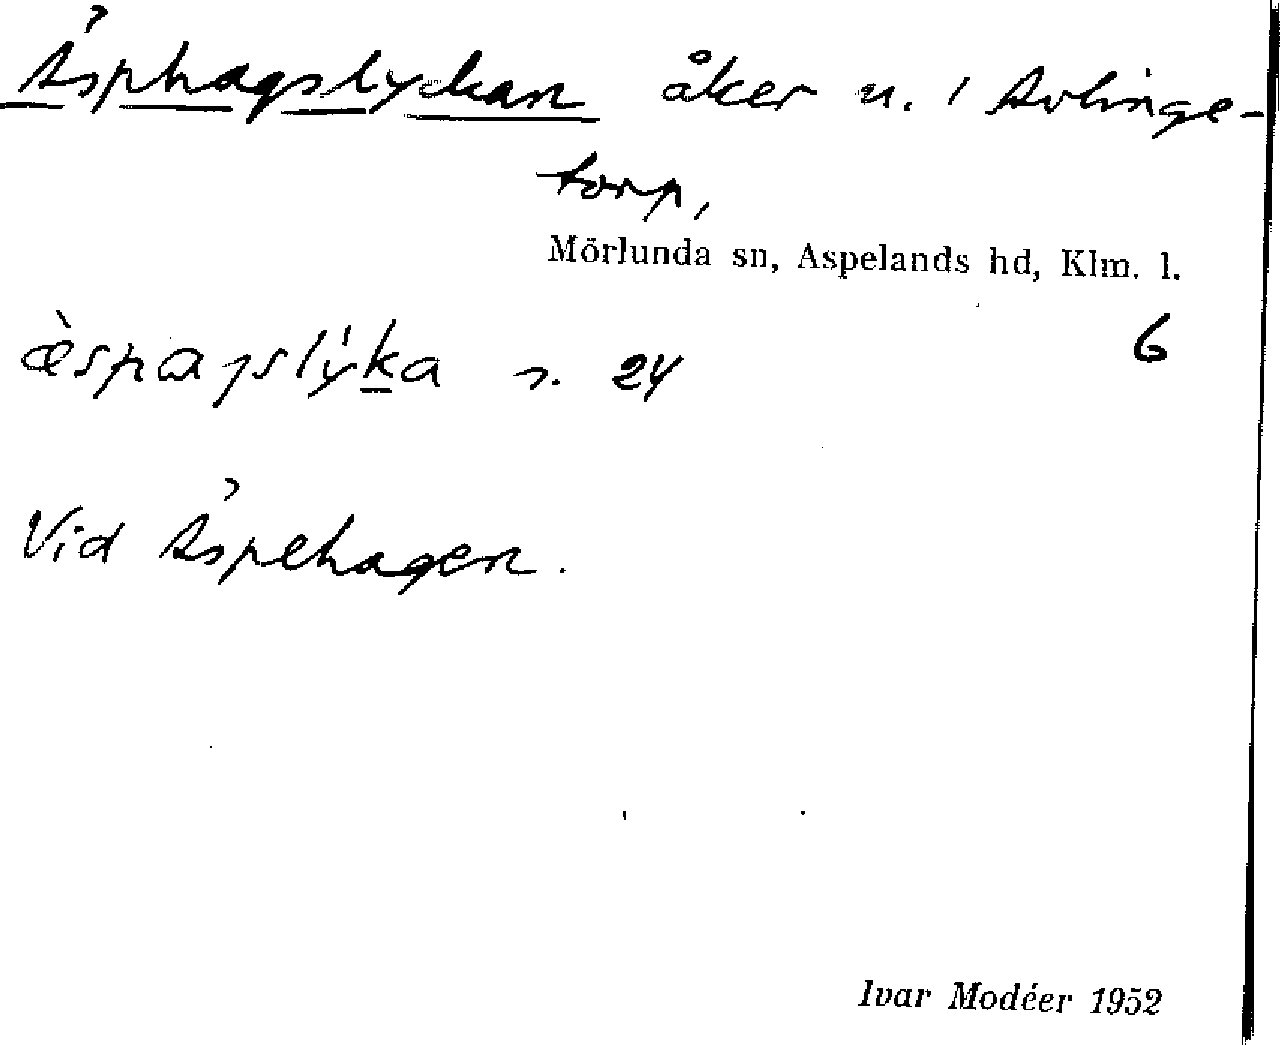 Åsphagslyckan åker n. i Avlinge-
torp,
Mörlunda sn, Aspelands hd, Klm. l.
6
æ̀spaɡslýka s. 24
Vid Åspehagen.
Ivar Modéer 1952